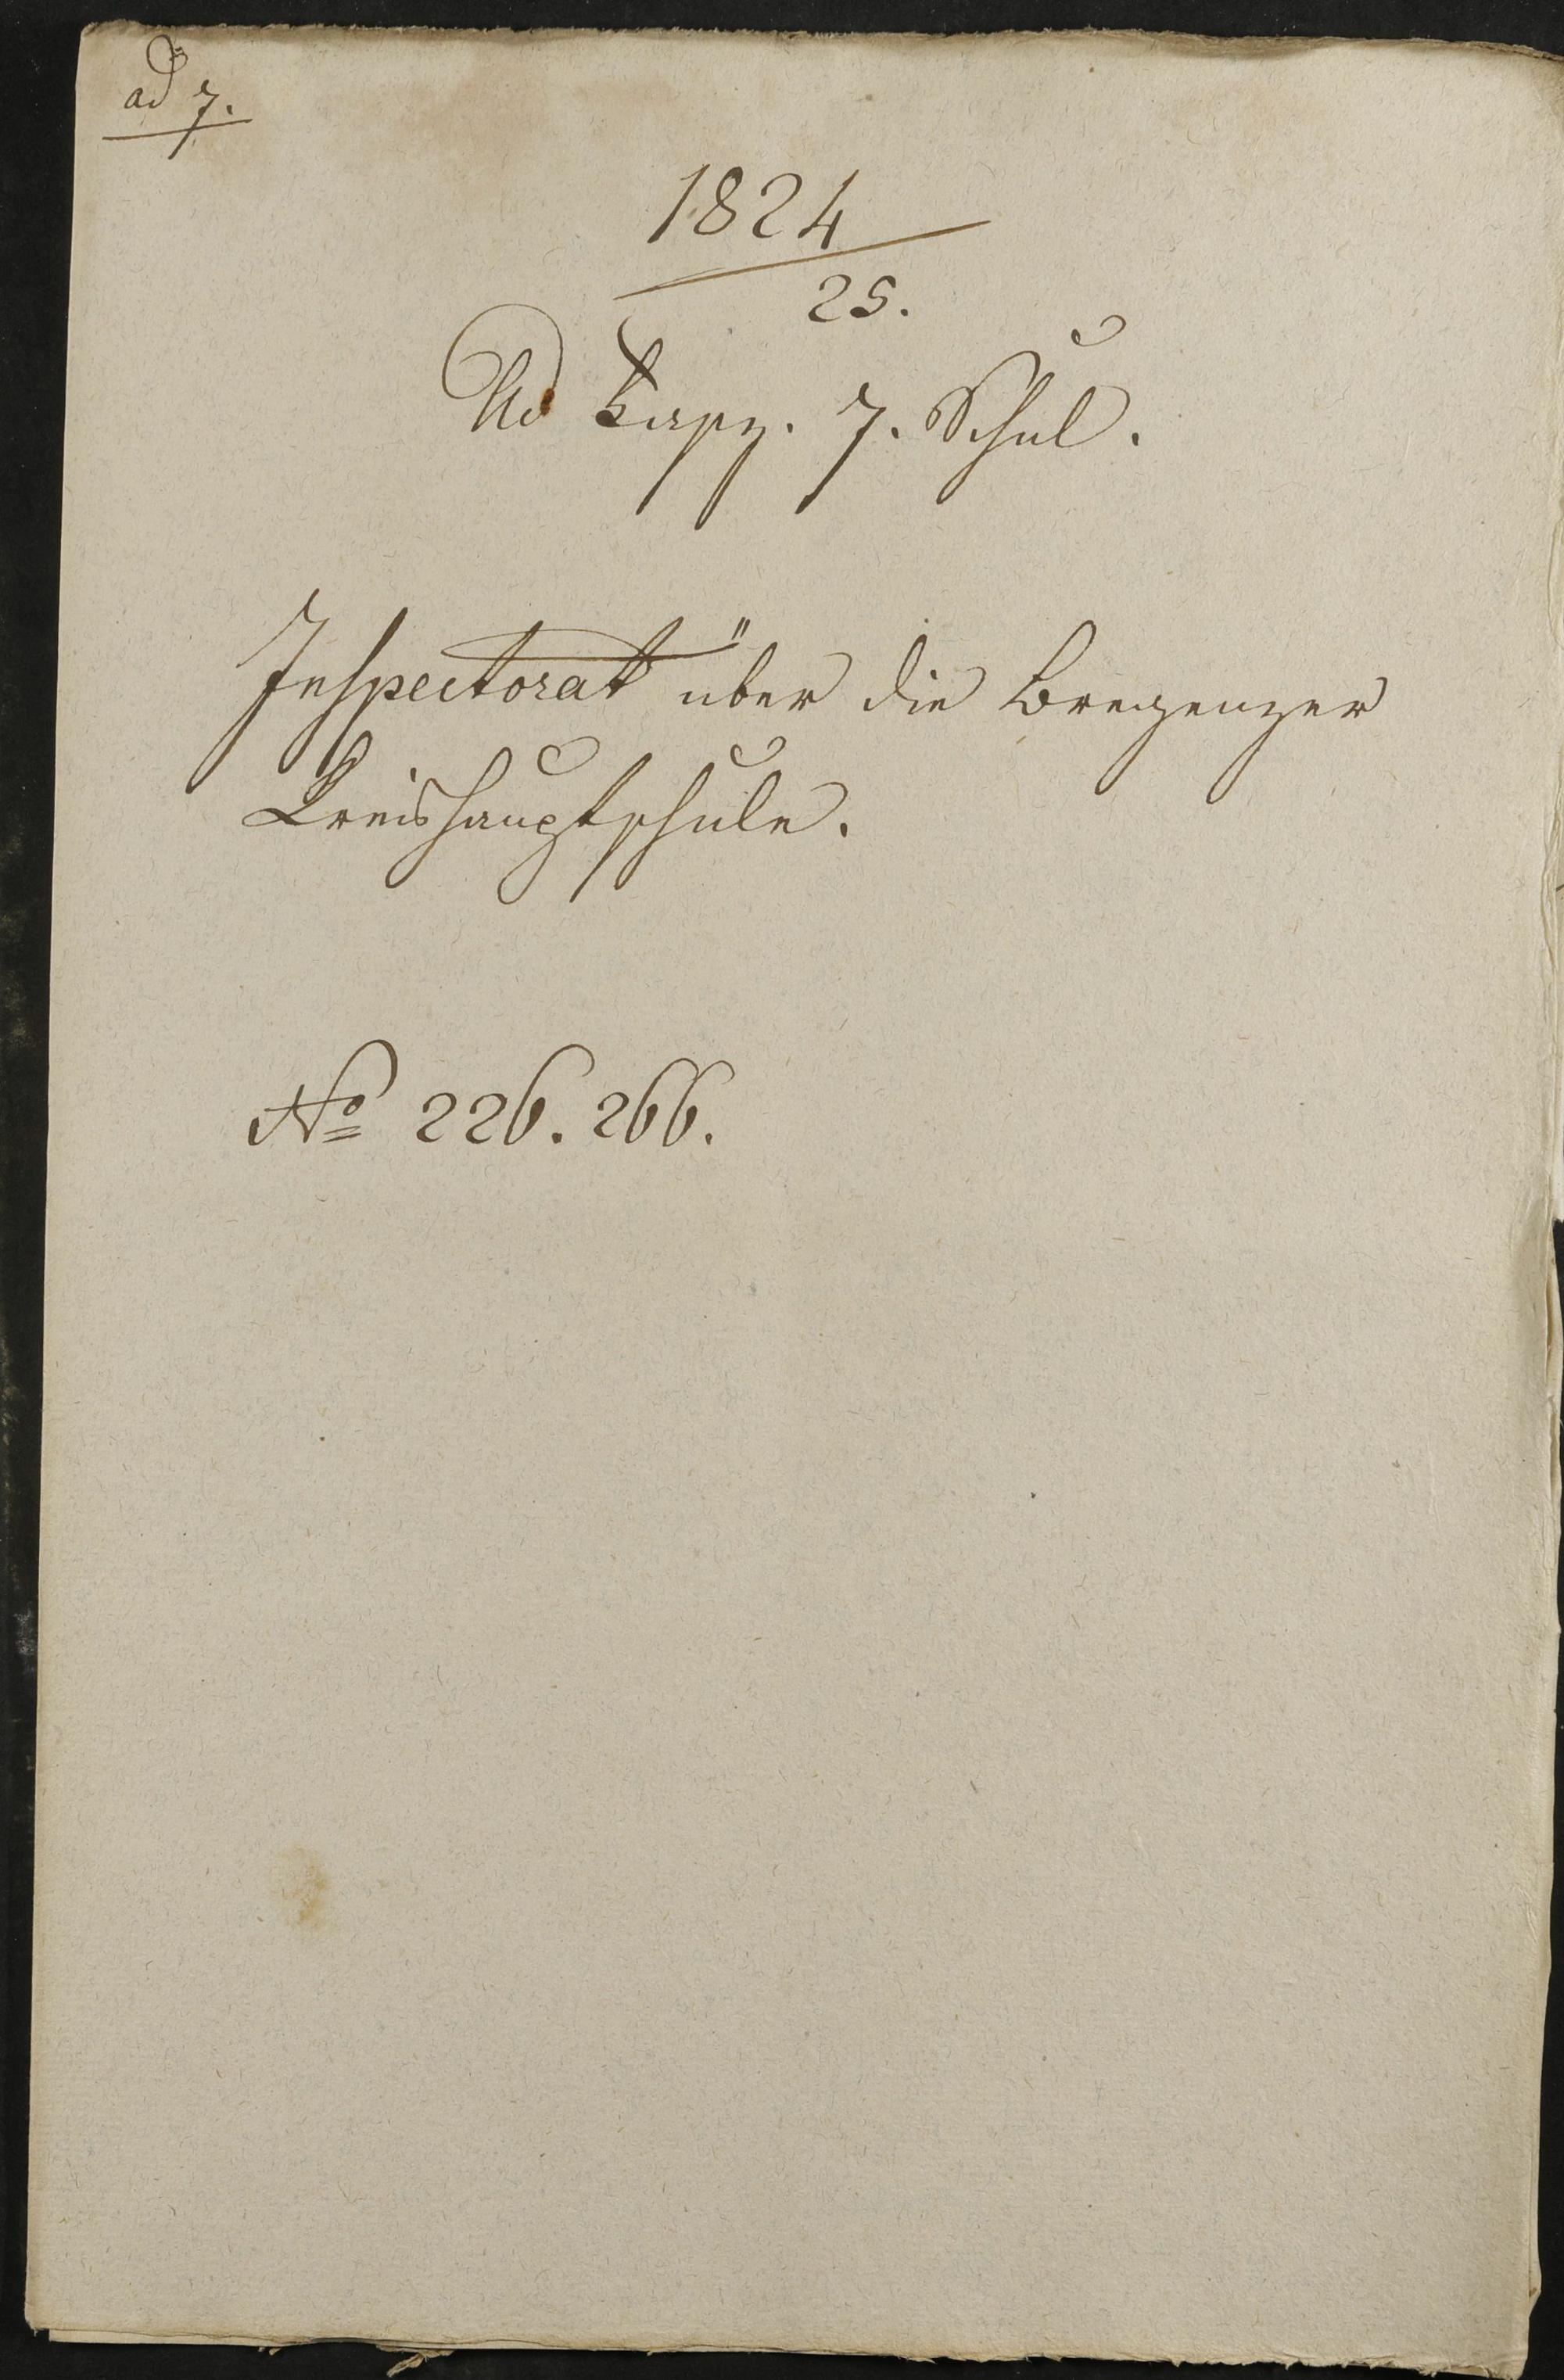 ad 7.
1824
25.
Ad Fasz. 7. Schul.
Inspectorat über die Bregenzer
Kreishauptschule.
No 226. 266.